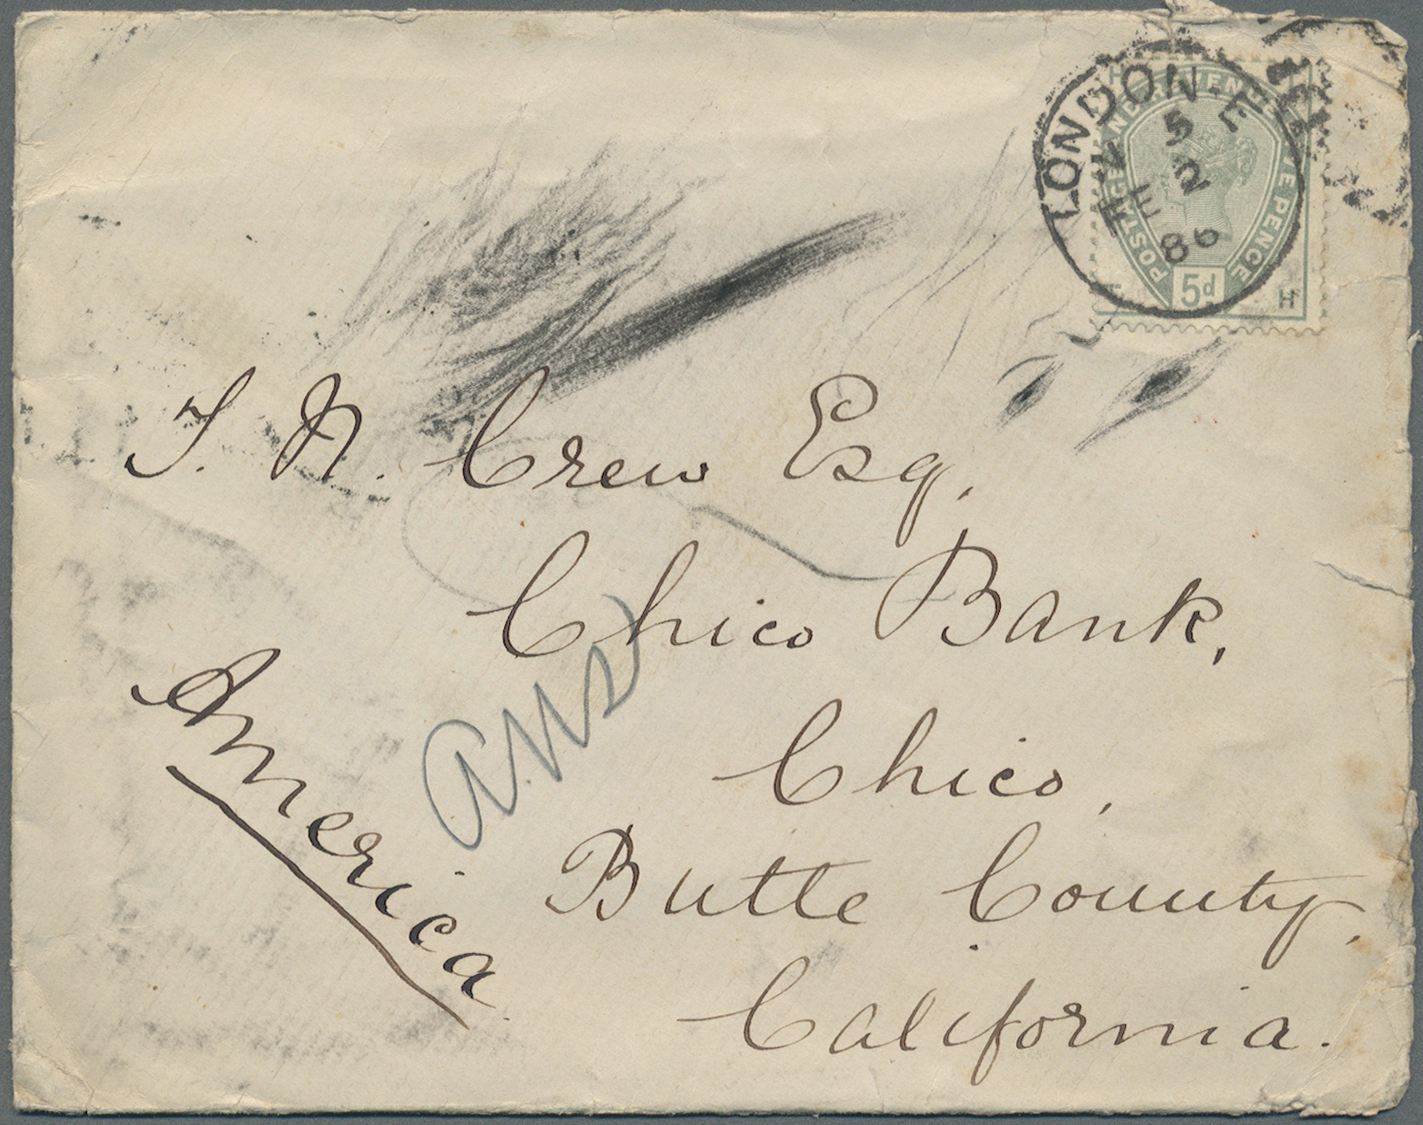 LONDON·E
5
FE 2
86
POSTAGE AND REVENUE FIVE PENCE
H
5d
H
J. N. Crew Esq,
Chico Bank,
Chico,
Butte County,
California.
America
ans